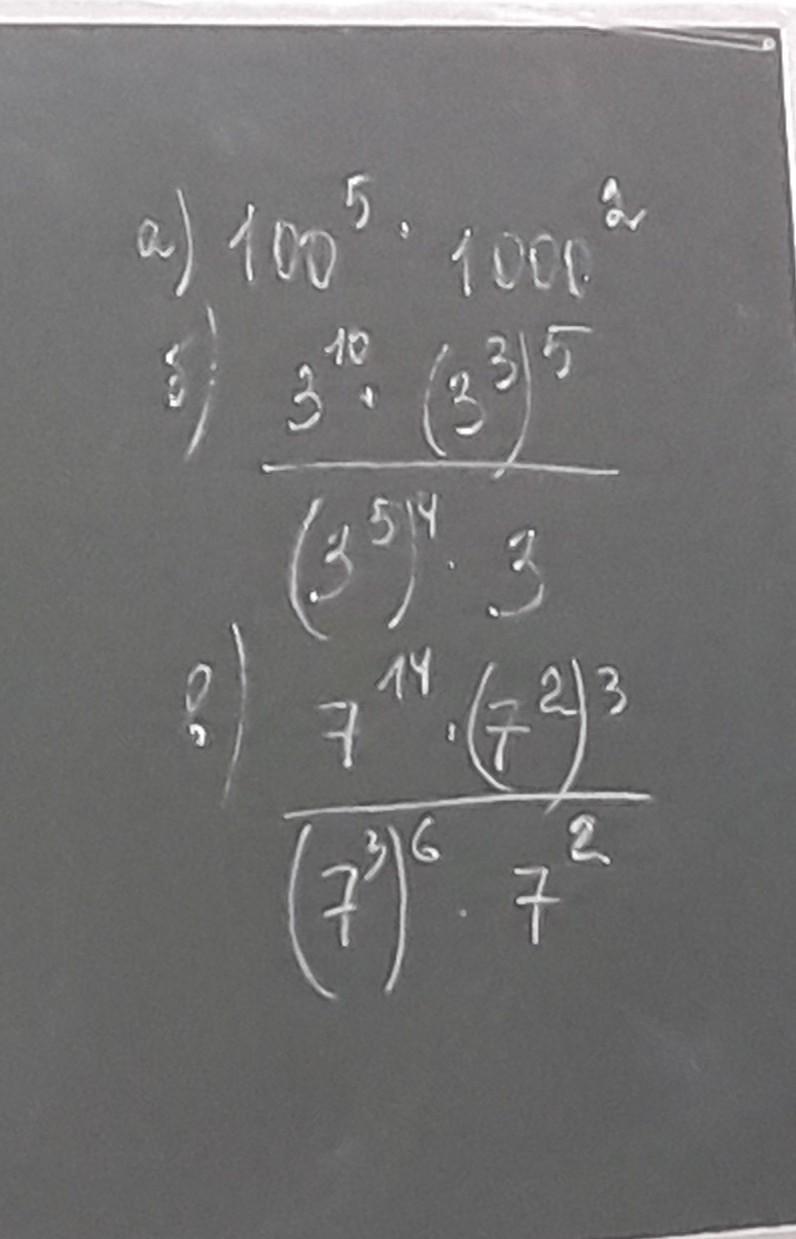 а) 100⁵ · 1000²
б) 3¹⁰ · (3³)⁵
(3⁵)⁴ · 3
в) 7¹⁴ · (7²)³
(7³)⁶ · 7²